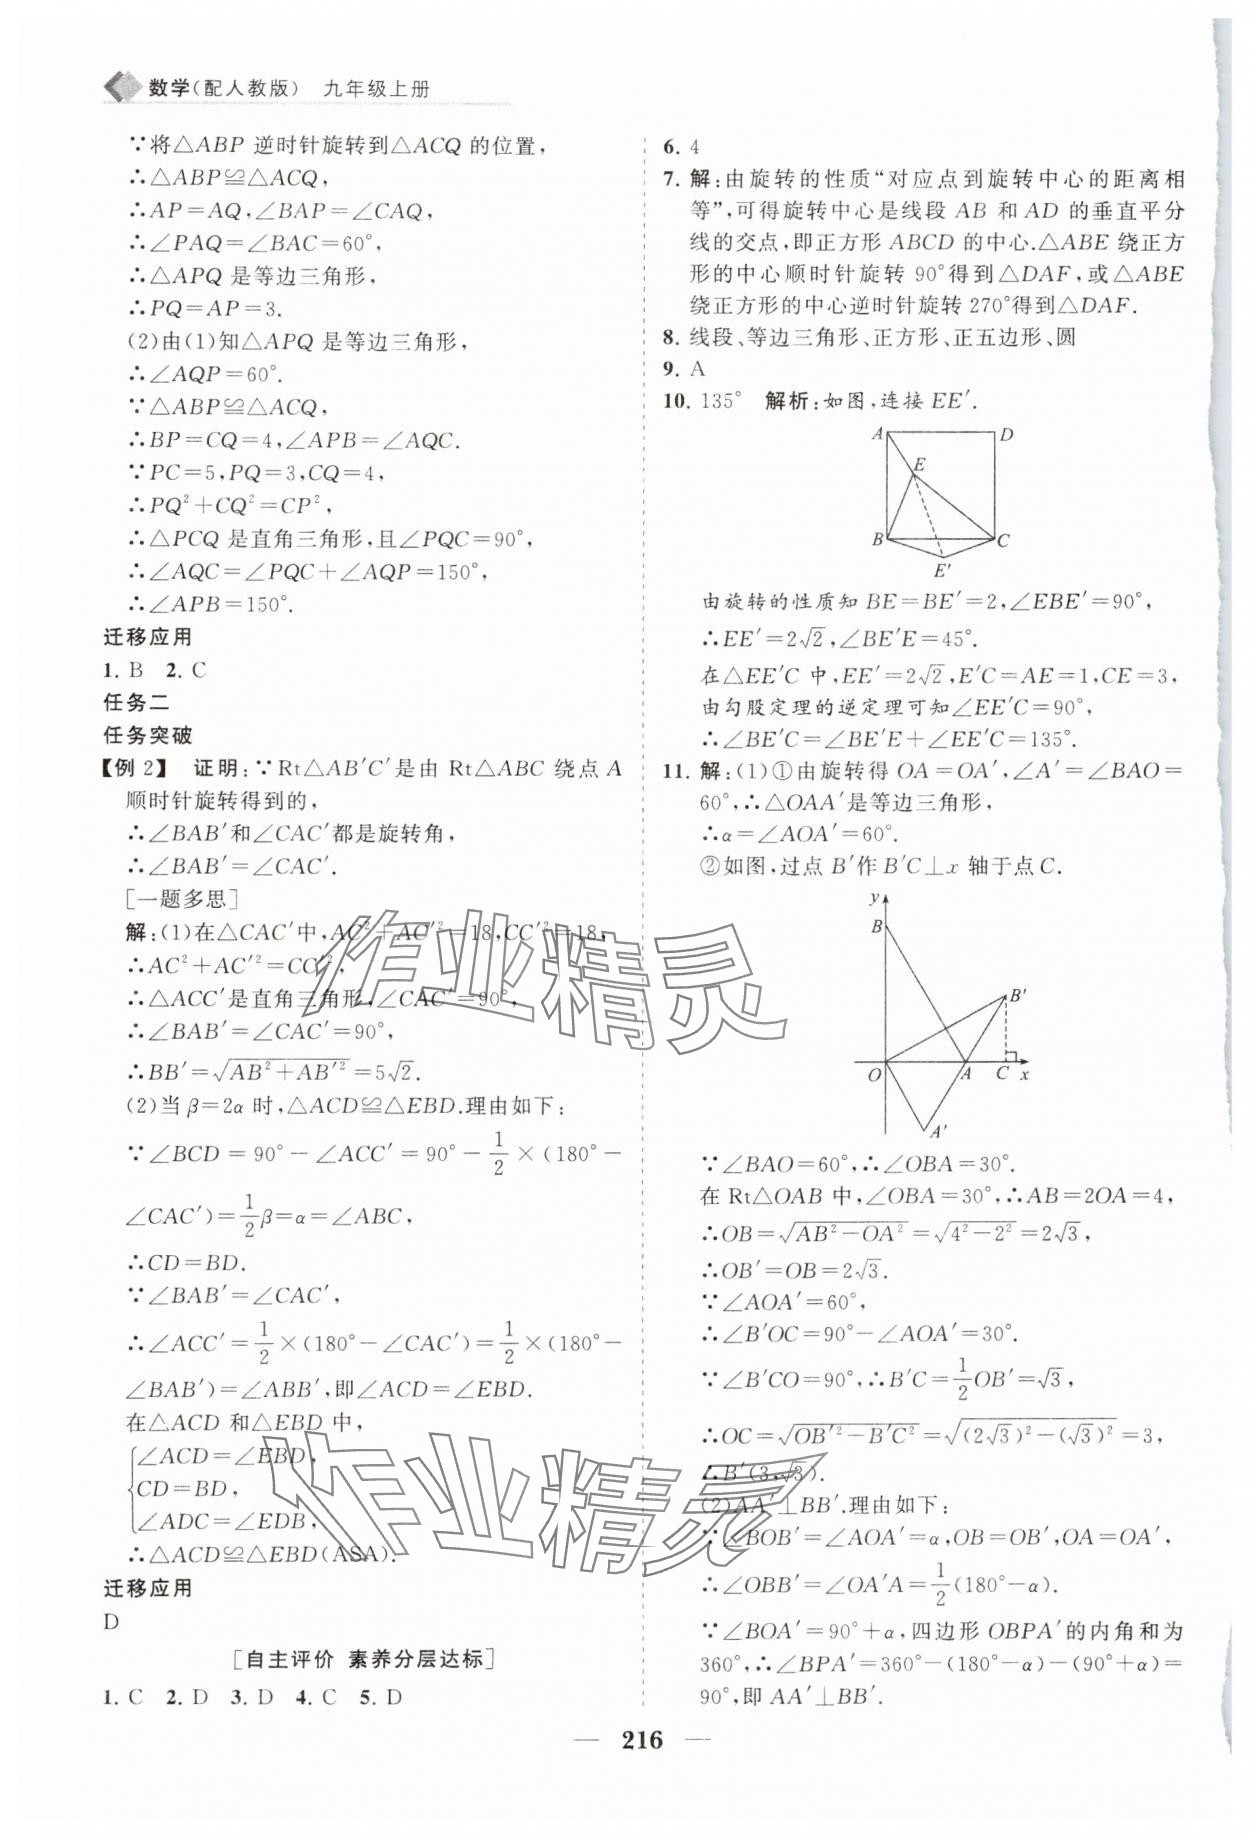 数学(配人教版) 九年级上册
∵将△ABP 逆时针旋转到△ACQ 的位置,
∴△ABP≌△ACQ,
∴AP=AQ,∠BAP=∠CAQ,
∴∠PAQ=∠BAC=60°,
∴△APQ 是等边三角形,
∴PQ=AP=3.
(2)由(1)知△APQ 是等边三角形,
∴∠AQP=60°.
∵△ABP≌△ACQ,
∴BP=CQ=4,∠APB=∠AQC.
∵PC=5,PQ=3,CQ=4,
∴PQ²+CQ²=CP²,
∴△PCQ 是直角三角形,且∠PQC=90°,
∴∠AQC=∠PQC+∠AQP=150°,
∴∠APB=150°.
迁移应用
1. B 2. C
任务二
任务突破
【例 2】 证明:∵Rt△AB′C′是由 Rt△ABC 绕点 A
顺时针旋转得到的,
∴∠BAB′和∠CAC′都是旋转角,
∴∠BAB′=∠CAC′.
[一题多思]
解:(1)在△CAC′中,AC²+AC′²=18,CC′²=18,
∴AC²+AC′²=CC′²,
∴△ACC′是直角三角形,∠CAC′=90°,
∴∠BAB′=∠CAC′=90°,
∴BB′=√(AB²+AB′²)=5√2.
(2)当 β=2α 时,△ACD≌△EBD.理由如下:
∵∠BCD=90°-∠ACC′=90°-1/2×(180°-
∠CAC′)=1/2β=α=∠ABC,
∴CD=BD.
∵∠BAB′=∠CAC′,
∴∠ACC′=1/2×(180°-∠CAC′)=1/2×(180°-
∠BAB′)=∠ABB′,即∠ACD=∠EBD.
在△ACD 和△EBD 中,
∠ACD=∠EBD,
CD=BD,
∠ADC=∠EDB,
∴△ACD≌△EBD(ASA).
迁移应用
D
[自主评价 素养分层达标]
1. C 2. D 3. D 4. C 5. D
6. 4
7. 解:由旋转的性质“对应点到旋转中心的距离相
等”,可得旋转中心是线段 AB 和 AD 的垂直平分
线的交点,即正方形 ABCD 的中心.△ABE 绕正方
形的中心顺时针旋转 90°得到△DAF,或△ABE
绕正方形的中心逆时针旋转 270°得到△DAF.
8. 线段、等边三角形、正方形、正五边形、圆
9. A
10. 135° 解析:如图,连接 EE′.
A D
E
B C
E′
由旋转的性质知 BE=BE′=2,∠EBE′=90°,
∴EE′=2√2,∠BE′E=45°.
在△EE′C 中,EE′=2√2,E′C=AE=1,CE=3,
由勾股定理的逆定理可知∠EE′C=90°,
∴∠BE′C=∠BE′E+∠EE′C=135°.
11. 解:(1)①由旋转得 OA=OA′,∠A′=∠BAO=
60°,∴△OAA′是等边三角形,
∴α=∠AOA′=60°.
②如图,过点 B′作 B′C⊥x 轴于点 C.
y
B
B′
O A C x
A′
∵∠BAO=60°,∴∠OBA=30°.
在 Rt△OAB 中,∠OBA=30°,∴AB=2OA=4,
∴OB=√(AB²-OA²)=√(4²-2²)=2√3,
∴OB′=OB=2√3.
∵∠AOA′=60°,
∴∠B′OC=90°-∠AOA′=30°.
∵∠B′CO=90°,∴B′C=1/2OB′=√3,
∴OC=√(OB′²-B′C²)=√((2√3)²-(√3)²)=3,
∴B′(3,√3).
(2)AA′⊥BB′.理由如下:
∵∠BOB′=∠AOA′=α,OB=OB′,OA=OA′,
∴∠OBB′=∠OA′A=1/2(180°-α).
∵∠BOA′=90°+α,四边形 OBPA′的内角和为
360°,∴∠BPA′=360°-(180°-α)-(90°+α)=
90°,即 AA′⊥BB′.
216
作业精灵
作业精灵